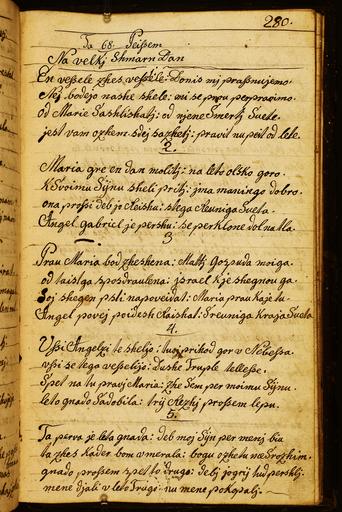 280.
Ta 68. Peißem
Na velki Shmarn Dan
En veßele zhes veßele: Donis mi praßnujemo.
Nej bodejo nashe shele: mi se prou perpravimo.
Od Marie Sashlishati: od njene Smerti Svete.
jest vam ozhem sdej sazheti: pravit nu peit od lete.
2.
Maria gre en dan molitj: na leto olsko goro.
K Svoimu Sijnu sheli pritj: jma maningo dobro.
ona proßi debi jo
Angel gabriel je pershu: se perklone dol na Ma.
3
Prau Maria bod zheshena: Mattj Gospuda moiga.
od taistga sposdraulena: jsrael kje shegnou ga.
Soj shegen psti napoveidat: Maria prau kaje tu.
Angel povej poidesh Raishal: Sreuniga Kraja Sueta.
4.
Vßi Angelzi te sheljo: tuoj prihod gor v Nebeßa.
vßi se tega veßelijo: dushe Truple telleße.
Spet na tu pravj Maria: zhe Sem per moimu Sijnu.
leto gnado Sadobila: trij Rezhy proßem lepu.
5.
Ta perva je leta gnada: deb moj Sijn per menj biu
ta zhes kader bom vmerala: bogu ozhetu me Srozhim.
gnado proßem spet to drugo: debj jogrij tud pershlj.
mene djali v leto Trugo: nu mene pokopalj.